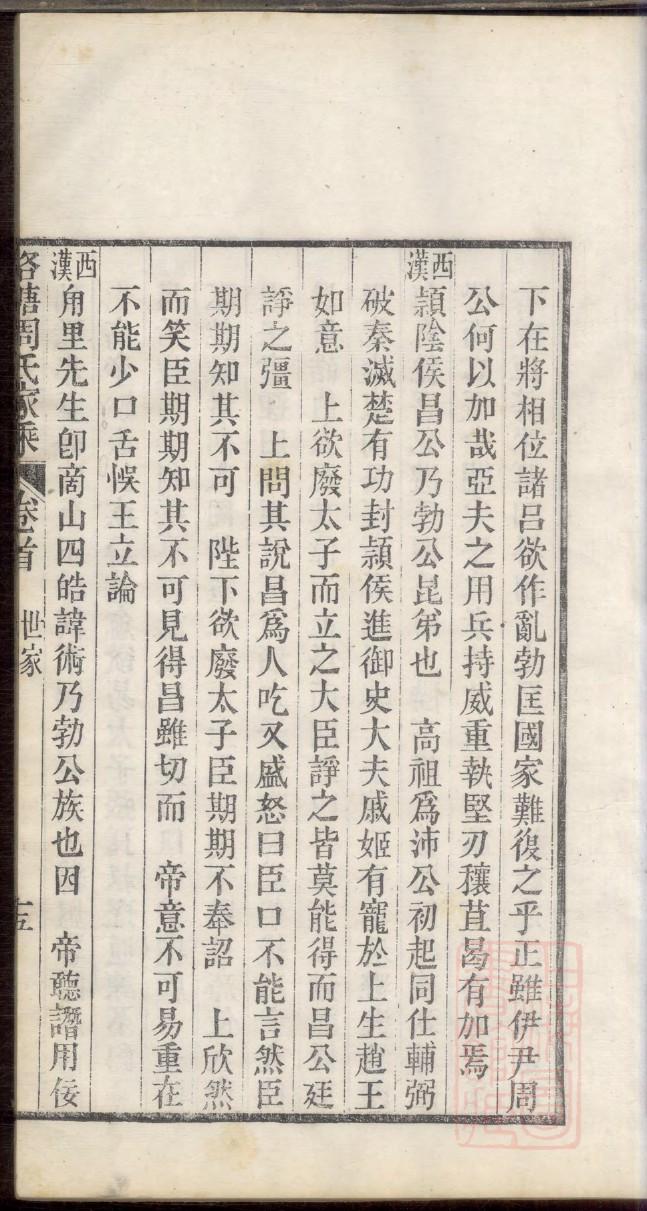 下在將相位諸呂欲作亂勃匡國家難復之乎正雖伊尹周
公何以加哉亞夫之用兵持威重執堅刃穰苴曷有加焉
西漢潁陰侯昌公乃勃公昆弟也　高祖爲沛公初起同仕輔弼
破秦滅楚有功封潁侯進御史大夫戚姬有寵於上生趙王
如意　上欲廢太子而立之大臣諍之皆莫能得而昌公廷
諍之彊　上問其說昌爲人吃又盛怒曰臣口不能言然臣
期期知其不可　陛下欲廢太子臣期期不奉詔　上欣然
而笑臣期期知其不可見得昌雖切而　帝意不可易重在
不能少口舌悞王立論
西漢甪里先生卽商山四皓諱術乃勃公族也因　帝聽譖用佞
塘周氏家乘　卷首　世家　十五